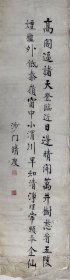 高閣逼諸天登臨近日邊晴開萬井樹愁看五陵
煙檻外低秦嶺窗中小渭川早知清淨理常願奉金仙
沙門